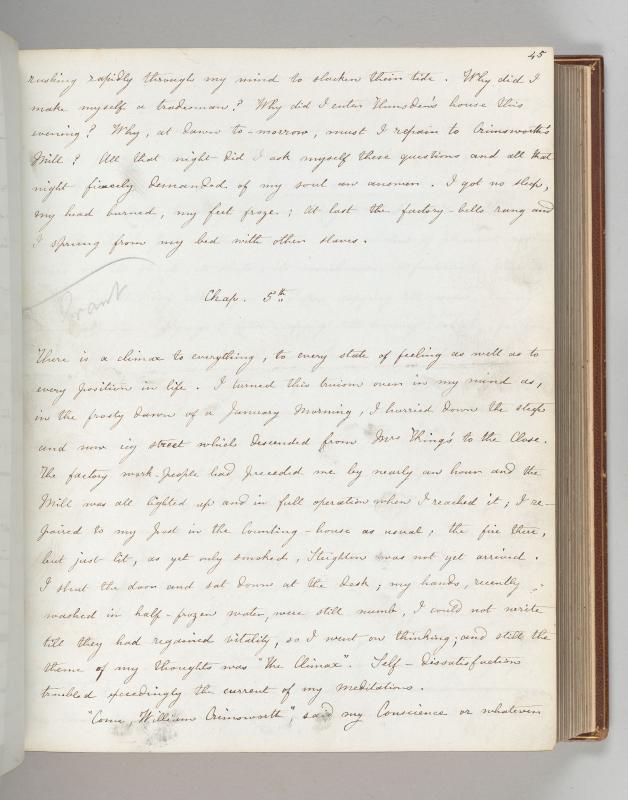 45
rushing rapidly through my mind to slacken their tide. Why did I
make myself a tradesman? Why did I enter Hunsden's house this
evening? Why, at dawn to-morrow, must I repair to Crimsworth's
Mill? All that night did I ask myself these questions and all that
night fiercely demanded of my soul an answer. I got no sleep,
my head burned, my feet froze; at last the factory-bells rang and
I sprung from my bed with other slaves.
Chap. 5th
Grant
There is a climax to everything, to every state of feeling as well as to
every position in life. I turned this truism over in my mind as,
in the frosty dawn of a January Morning, I hurried down the steep
and now icy street which descended from Mrs King's to the Close.
The factory work-people had preceded me by nearly an hour and the
Mill was all lighted up and in full operation when I reached it; I re-
paired to my post in the Counting-house as usual; the fire there,
but just lit, as yet only smoked, Steighton was not yet arrived.
I shut the door and sat down at the desk; my hands, recently
washed in half-frozen water, were still numb, I could not write
till they had regained vitality, so I went on thinking; and still the
theme of my thoughts was "the Climax". Self-dissatisfaction
troubled exceedingly the current of my meditations.
"Come, William Crimsworth", said my Conscience or whatever